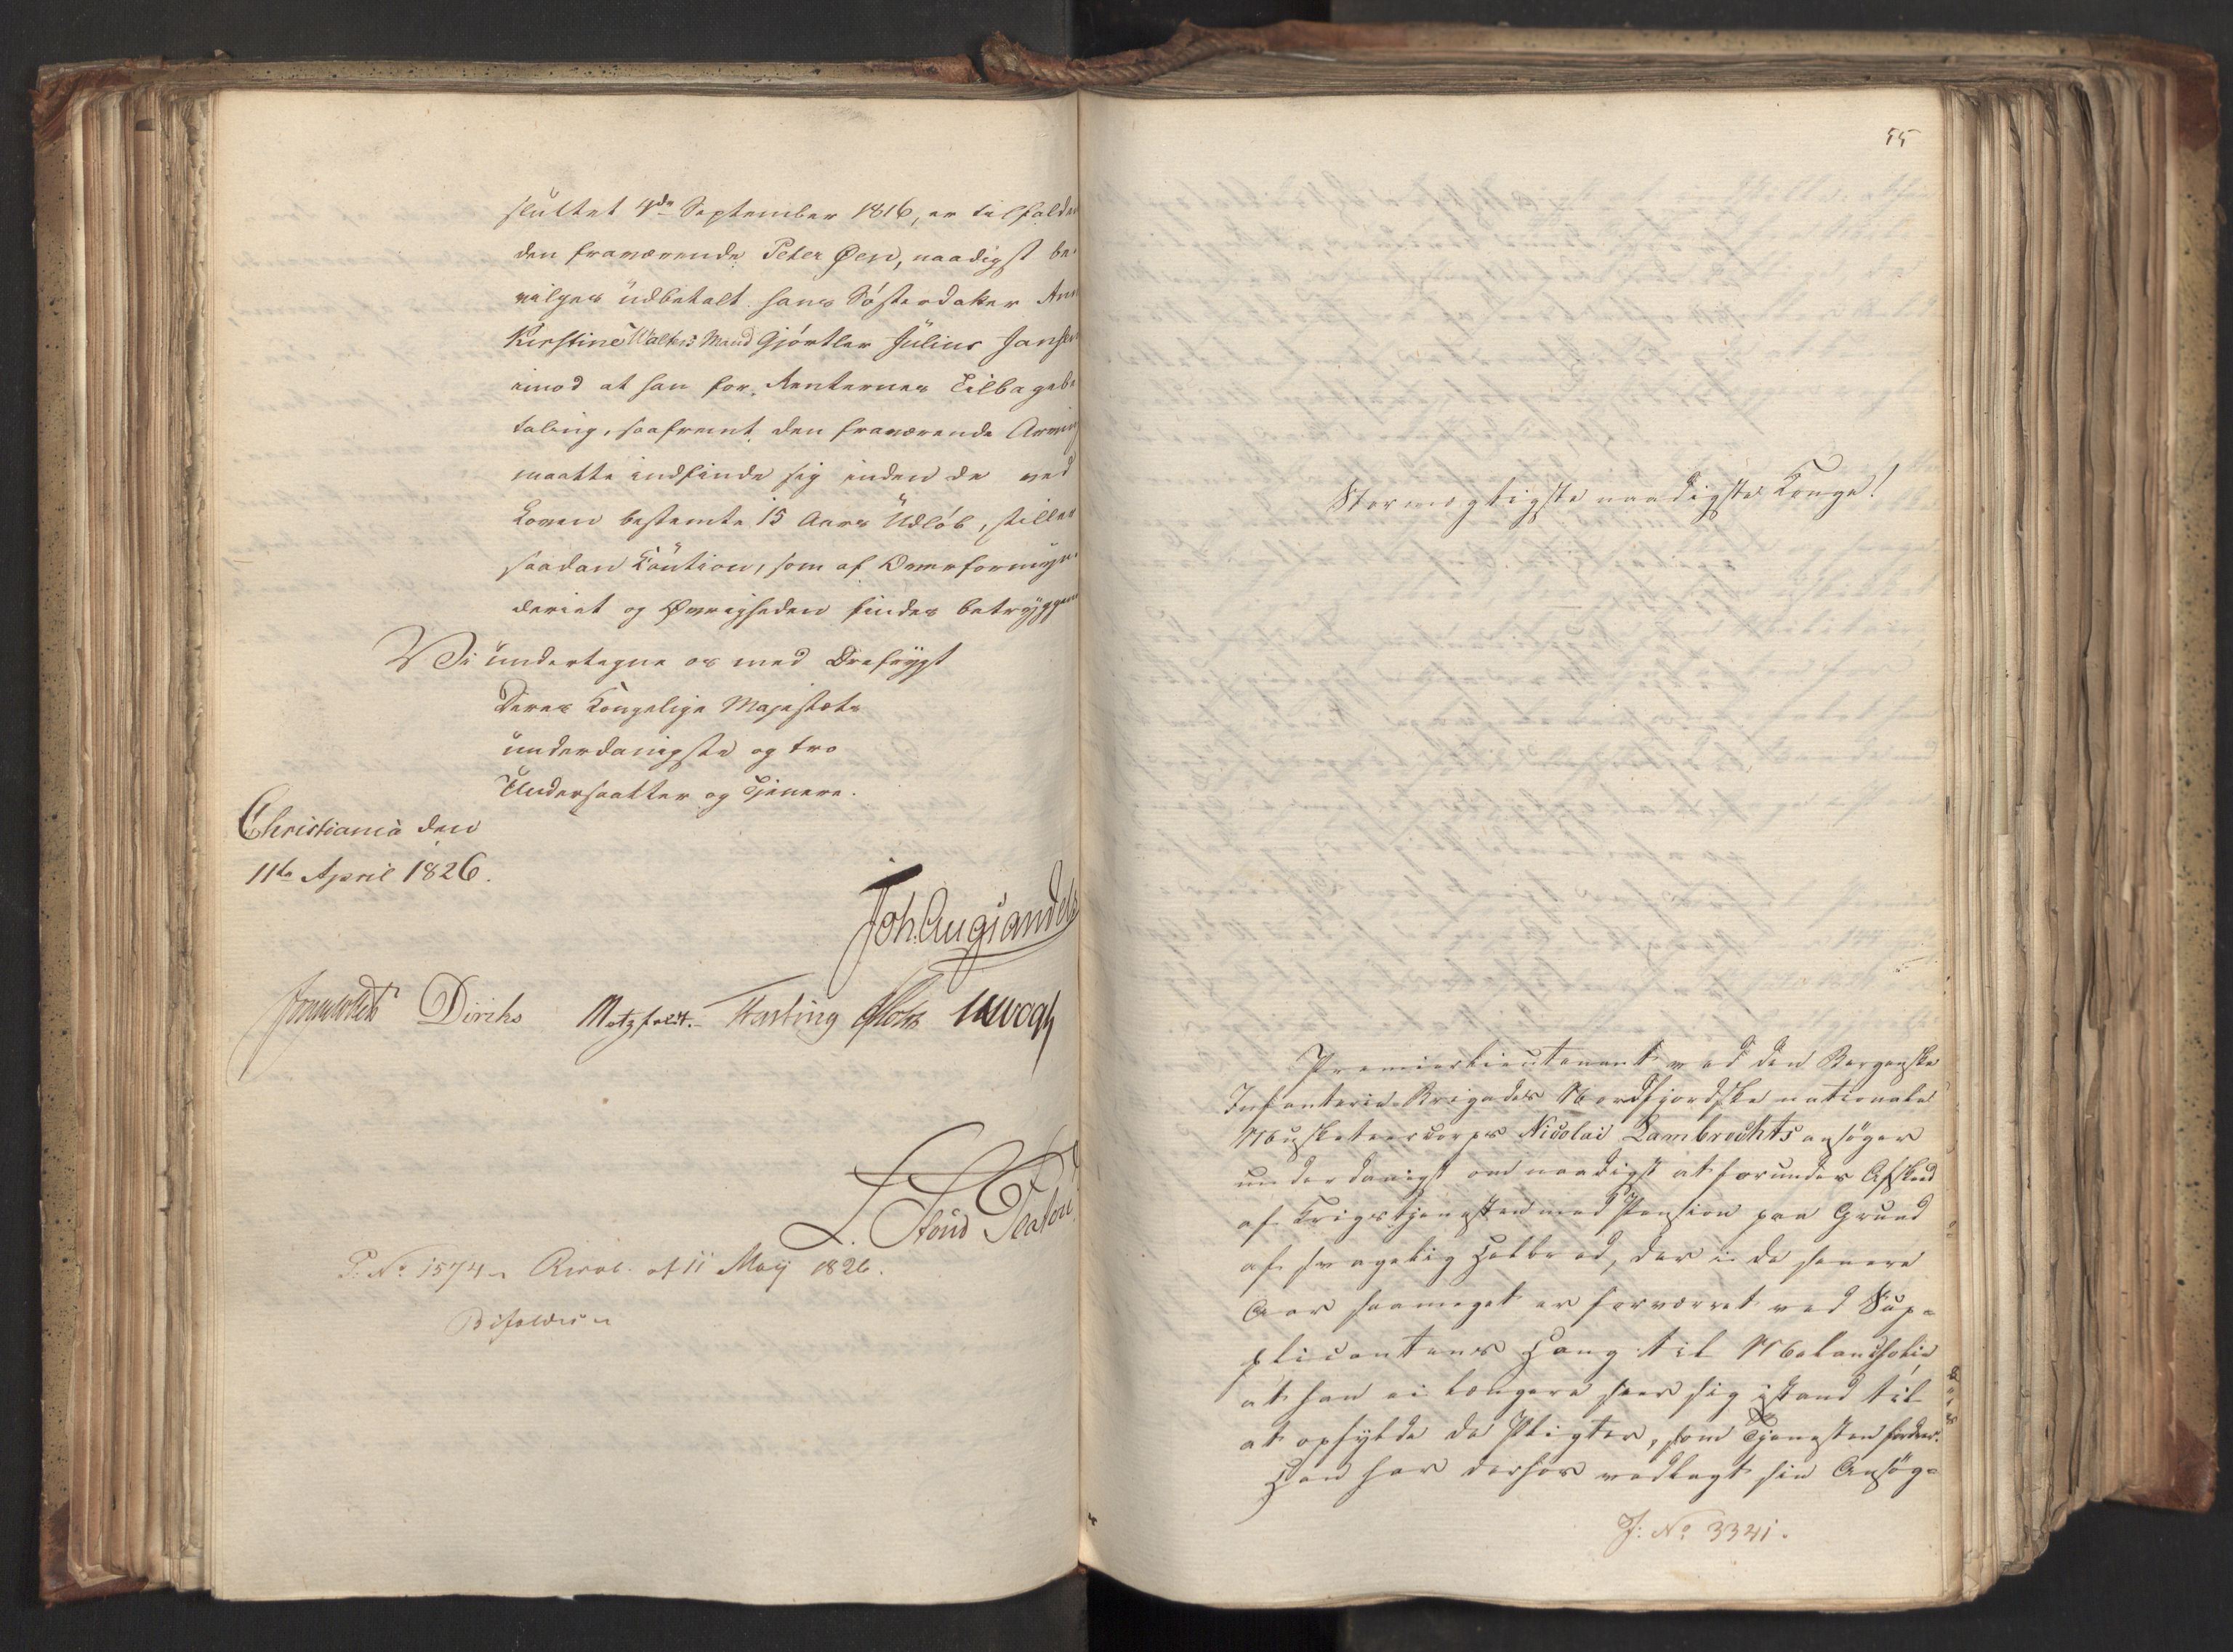 sluttet 4de September 1816, er tilfalden
den fraværende Peter Øen, naadigst be-
vilges udbetalt hans Søsterdatter Ann
Kirstine Walters Mand Gjørtler Julius Jansen
imod at han for Renternes Tilbagebe
taling, saafremt den fraværende Arving
maatte indfinde sig inden de ved
Loven bestemte 15 Aars Udløb, stiller
saadan Caution, som af Overformyn-
deriet og Øvrigheden findes betryggende
Vi undertegne os med Ærefrygt
Deres Kongelige Majestæts
underdanigste og tro
Undersaatter og Tjenere.
Christiania den
11te April 1826.
Joh. Aug Sandels
Sommerhielm Diriks Motzfeldt. Fasting JHVogt
L. Stoud Platou
P. No 1574. Resol. af 11 May 1826.
Bifaldes
55
Stormægtigste naadigste Konge!
Premierlieutenant ved den Bergenske
Infanterie-Brigades Nordfjordske nationale
Musketeercorps Nicolai Lambrechts ansøger
underdanigst om naadigst at forundes Afsked
af Krigstjenesten med Pension paa Grund
af svagelig Helbred, der i de senere
Aar saameget er forværret ved Sup-
plicantens Hang til Melancholie,
at han ei længere seer sig istand til
at opfylde de Pligter, som Tjenesten fordrer.
Han har derhos vedlagt sin Ansøg-
J: No 3321.